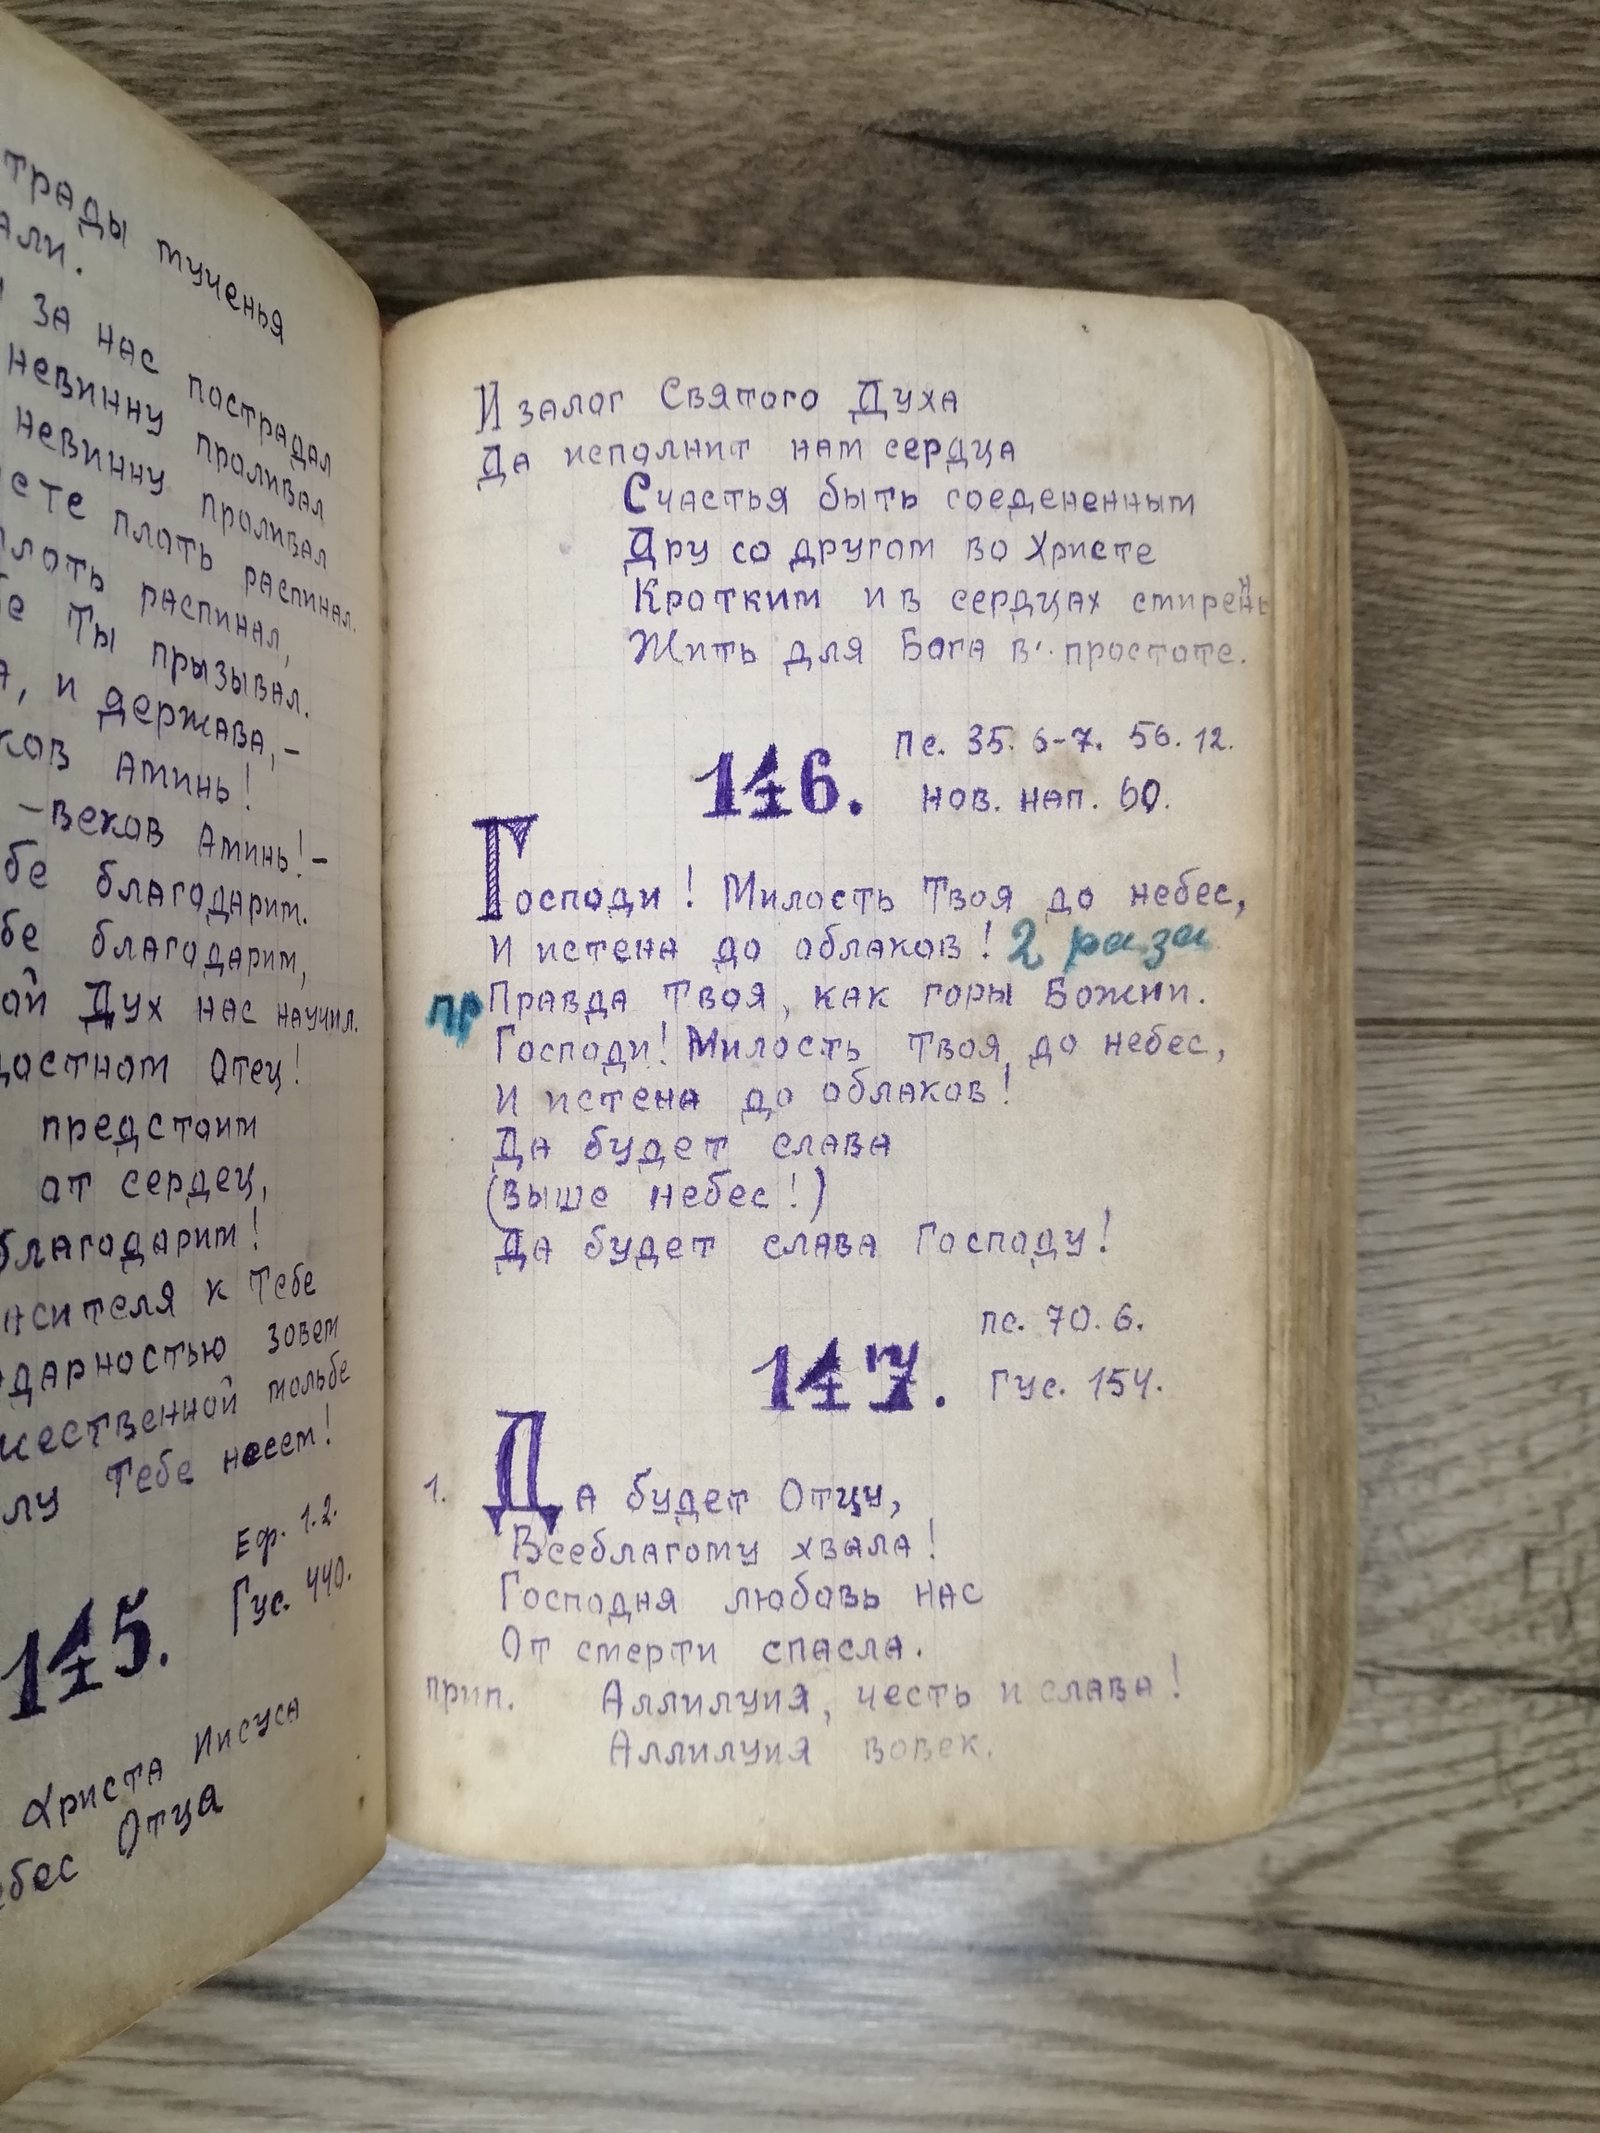 трады мученья
али.
за нас пострадал
невинну проливал
невинну проливал
сте плоть распинал.
плоть распинал,
бе Ты прызывал.
а, и держава, –
ков Аминь!
– веков Аминь! –
бе благодарим.
бе благодарим,
ой Дух нас научил.
достном Отец!
предстоим
от сердец,
благодарим!
асителя к Тебе
одарностью зовем
жественной мольбе
лу Тебе несем!
Еф. 1.2.
145. Гус. 440.
Христа Иисуса
ебес Отца
И залог Святого Духа
Да исполнит нам сердца
Счастья быть соедененным
Дру со другом во Христе
Кротким и в сердцах смирень
Жить для Бога в простоте.
Пс. 35. 6-7. 56. 12.
146. нов. нап. 60.
Господи! Милость Твоя до небес,
И истена до облаков! 2 раза
пр Правда Твоя, как горы Божии.
Господи! Милость Твоя до небес,
И истена до облаков!
Да будет слава
(Выше небес!)
Да будет слава Господу!
пс. 70. 6.
147. Гус. 154.
1. Да будет Отцу,
Всеблагому хвала!
Господня любовь нас
От смерти спасла.
прип. Аллилуия, честь и слава!
Аллилуия вовек.